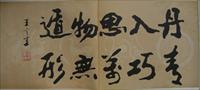 丹青
入巧
思萬
物無
遁形